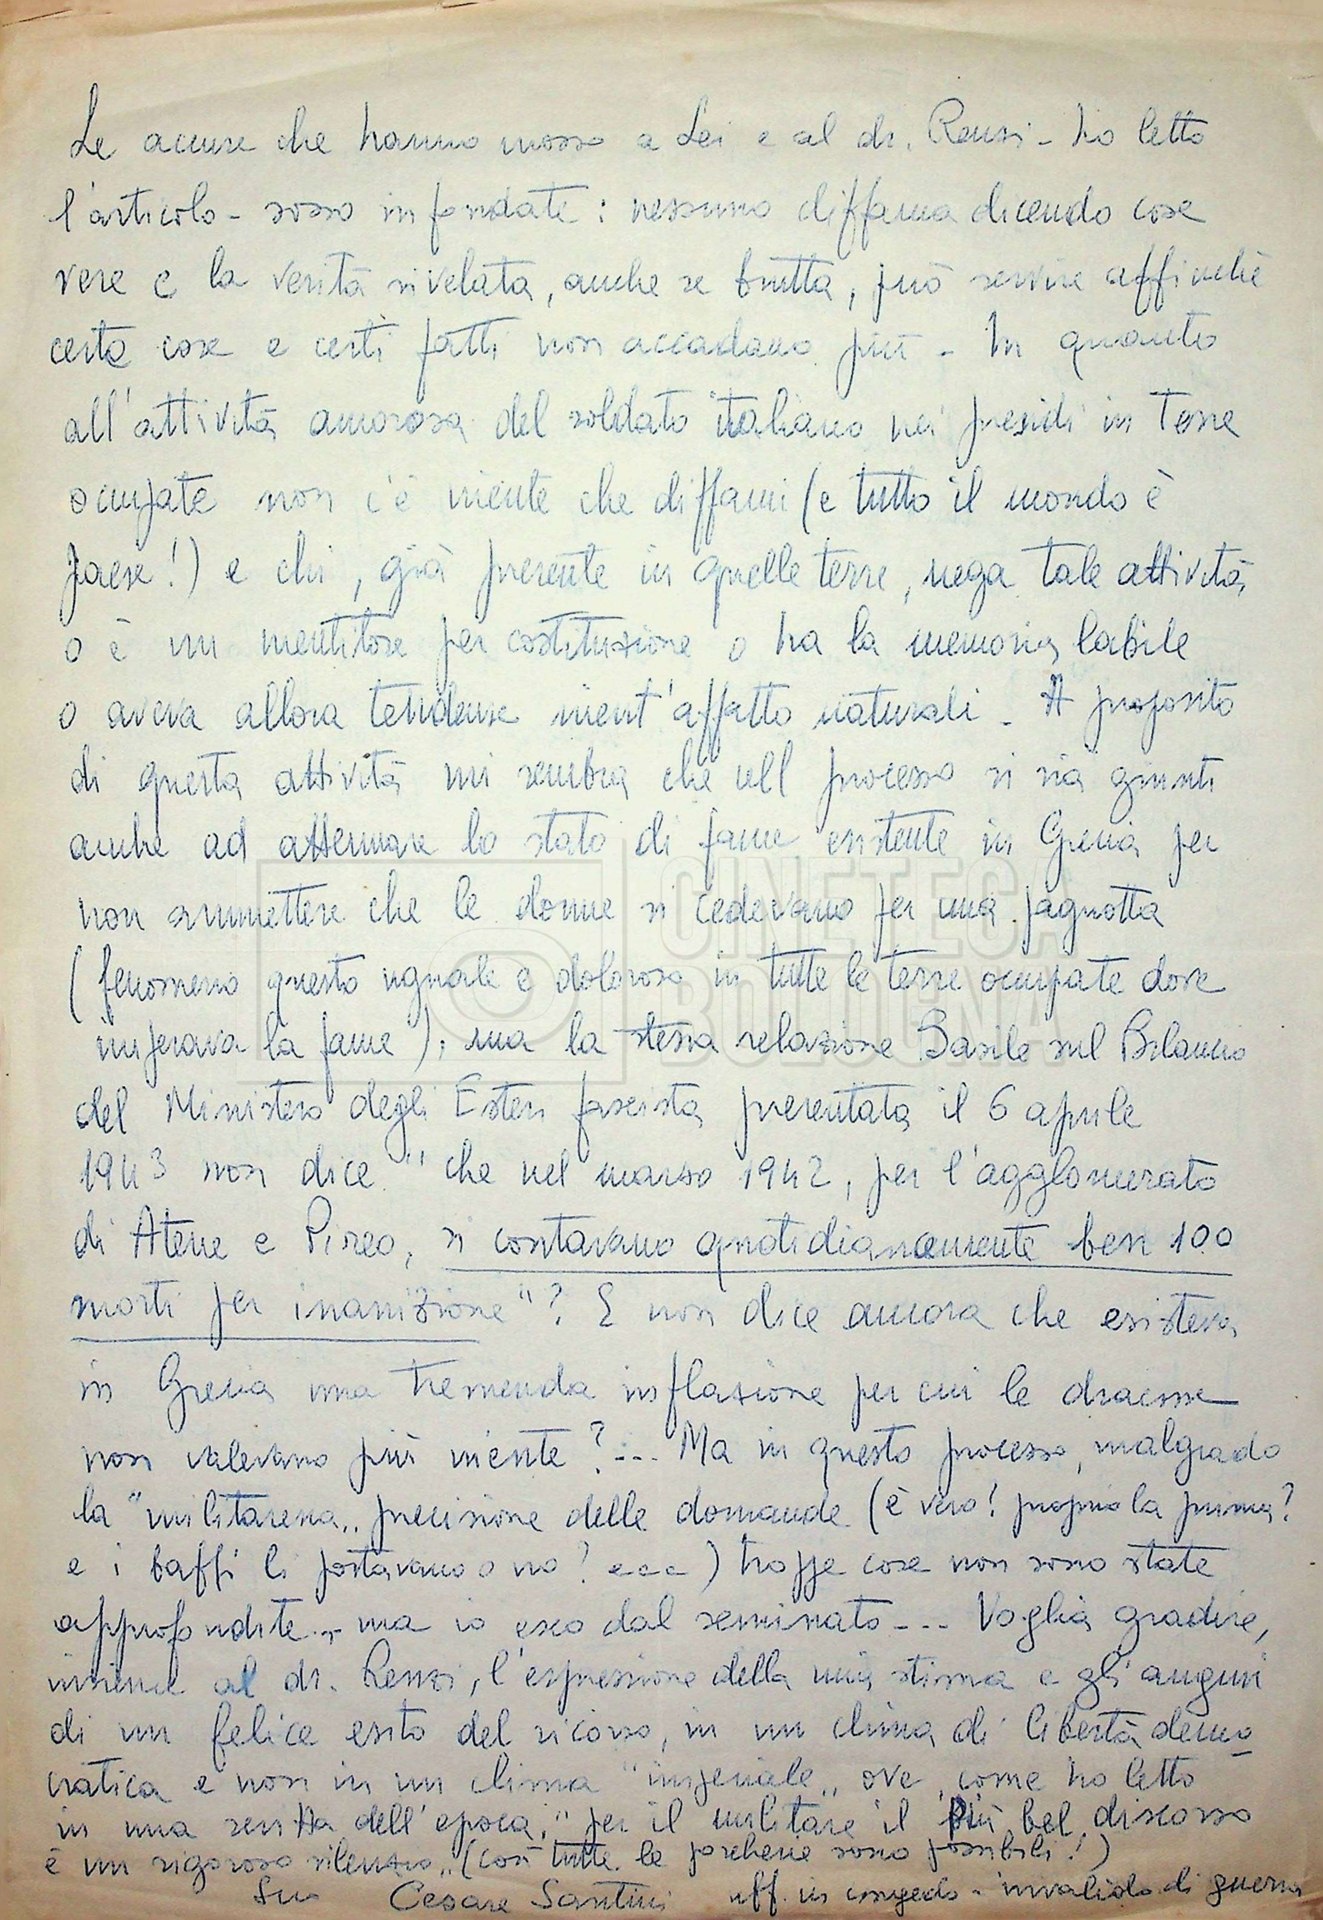 Le accuse che hanno mosso a Lei e al dr. Renzi - ho letto
l'articolo - sono infondate: nessuno diffama dicendo cose
vere e la verità rivelata, anche se brutta, può servire affinchè
certe cose e certi fatti non accadano più - In quanto
all'attività amorosa del soldato italiano nei presidi in terre
occupate non c'è niente che diffami (e tutto il mondo è
paese!) e chi, già presente in quelle terre, nega tale attività
o è un mentitore per costituzione o ha la memoria labile
o aveva allora tendenze nient'affatto naturali - A proposito
di questa attività mi sembra che nel processo si sia giunti
anche ad attenuare lo stato di fame esistente in Grecia per
non ammettere che le donne si cedevano per una pagnotta
(fenomeno questo uguale e doloroso in tutte le terre occupate dove
imperava la fame); ma la stessa relazione Basile sul Bilancio
del Ministero degli Esteri fascista presentata il 6 aprile
1943 non dice "che nel marzo 1942, per l'agglomerato
di Atene e Pireo, si contavano quotidianamente ben 100
morti per inanizione"? E non dice ancora che esisteva
in Grecia una tremenda inflazione per cui le dracme
non valevano più niente?... Ma in questo processo, malgrado
la "militaresca" precisione delle domande (è vero! proprio la prima?
e i baffi li portavano o no? ecc) troppe cose non sono state
approfondite... ma io esco dal seminato... Voglia gradire,
insieme al dr. Renzi, l'espressione della mia stima e gli auguri
di un felice esito del ricorso, in un clima di libertà demo
cratica e non in un clima "imperiale" ove, come ho letto
in una scritta dell'epoca, "per il militare il più bel discorso
è un rigoroso silenzio" (così tutte le porcherie sono possibili!)
Suo Cesare Santini uff. in congedo - invalido di guerra
CINETECA
BOLOGNA